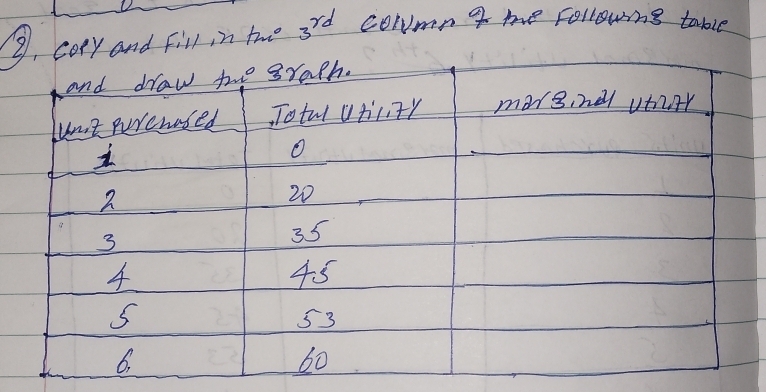 2. copy and Fill in the 3rd column of the Following table
and draw the graph.
Unit purchased Total Utility marginal utility
1 0
2 20
3 35
4 45
5 53
6. 60